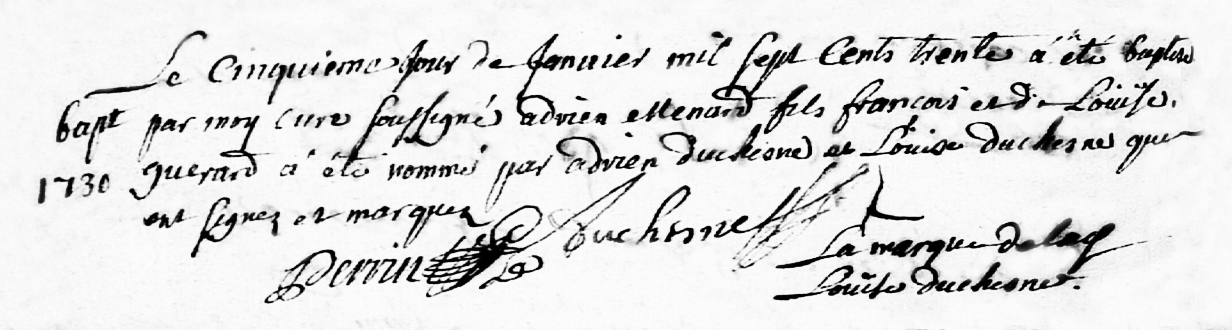 Le Cinquieme Jour de Janvier mil sept Cents trente à été baptise
bapt par moy Curé soussigné adrien Menard fils françois et de Louise
1730 guerard à été nommé par adrien duchesne et Louise duchesne qui
ont signez et marquez
Perrin Duchesne La marque de lad
Louise duchesne.